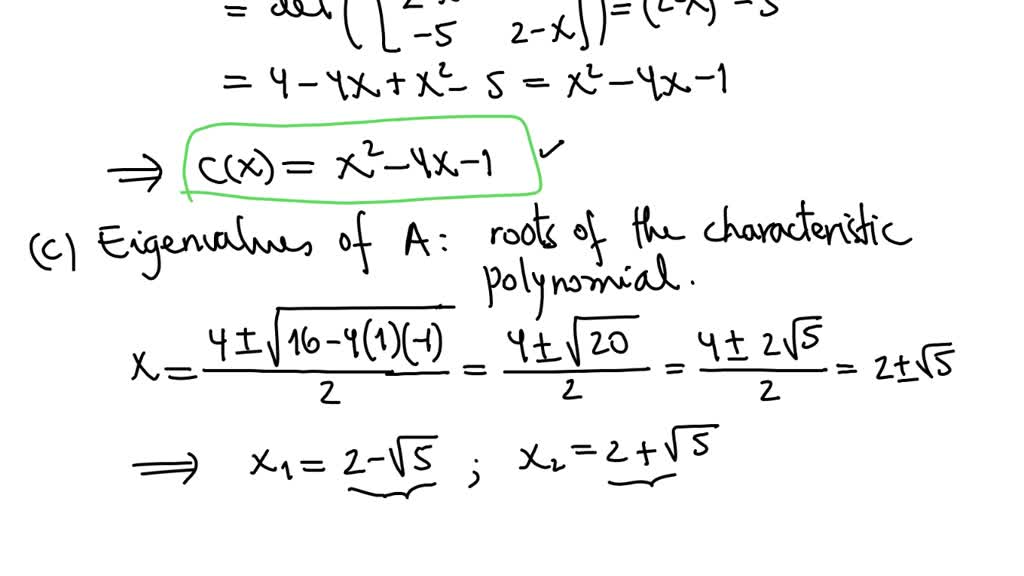 = det([2-x
-5 2-x]) = (2-x)² - 5
= 4 - 4x + x² - 5 = x² - 4x - 1
⇒ C(x) = x² - 4x - 1 ✓
(c) Eigenvalues of A: roots of the characteristic
polynomial.
x = (4 ± √(16 - 4(1)(-1)))/2 = (4 ± √20)/2 = (4 ± 2√5)/2 = 2 ± √5
⇒ x₁ = 2 - √5 ; x₂ = 2 + √5